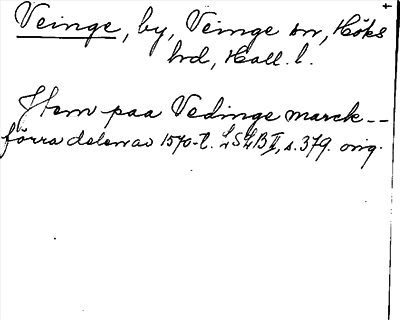 Veinge, by, Veinge sn, Höks
hrd, Hall. l.
Item paa Vedinge marck --
förra delen av 1570-t. LSLB II, s. 379. orig.